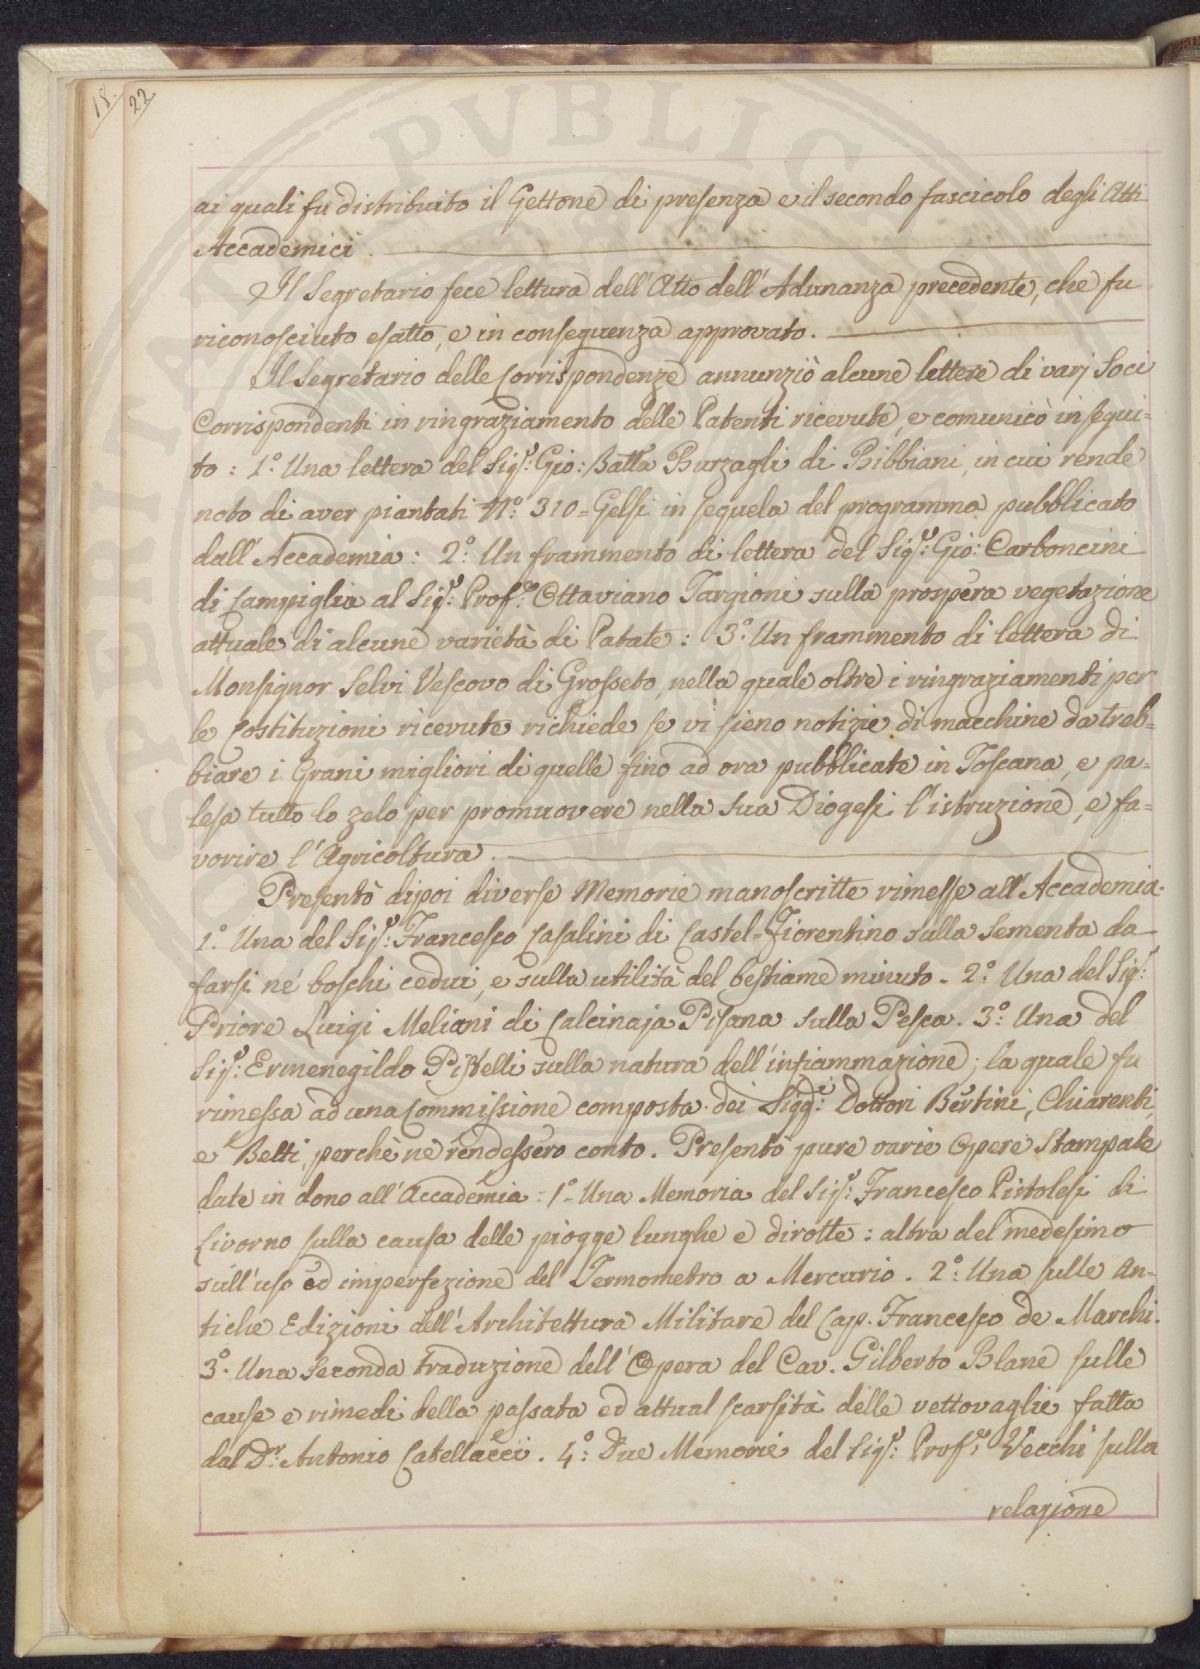 18.
22
PVBLIC
ai quali fu distribuito il Gettone di presenza e il secondo fascicolo degli Atti
Accademici.
Il Segretario fece lettura dell'Atto dell'Adunanza precedente, che fu
riconosciuto esatto, e in conseguenza approvato.
Il Segretario delle Corrispondenze annunziò alcune lettere di varj Soci
Corrispondenti in ringraziamento delle Patenti ricevute, e comunicò in segui=
to: 1.º Una lettera del Sigr: Gio: Batta Burzagli di Bibbiani, in cui rende
noto di aver piantati Nº: 310= Gelsi in sequela del programma pubblicato
dall'Accademia: 2.º Un frammento di lettera del Sigr: Gio: Carboncini
di Campiglia al Sigr: Profe. Ottaviano Targioni sulla prospera vegetazione
attuale di alcune varietà di Patate: 3.º Un frammento di lettera di
Monsignor Selvi Vescovo di Grosseto, nella quale oltre i ringraziamenti per
le Costituzioni ricevute richiede se vi sieno notizie di macchine da treb=
biare i Grani migliori di quelle fino ad ora pubblicate in Toscana, e pa=
lesa tutto lo zelo per promuovere nella sua Diogesi l'istruzione, e fa=
vorire l'Agricoltura.
Presentò dipoi diverse Memorie manoscritte rimesse all'Accademia.
1.º Una del Sigr: Francesco Casalini di Castel=Fiorentino sulla Sementa da
farsi ne' boschi cedui, e sulla utilità del bestiame minuto. 2.º Una del Sigr:
Priore Luigi Meliani di Calcinaja Pisana sulla Pesca. 3.º Una del
Sigr: Ermenegildo Pistelli sulla natura dell'infiammazione; la quale fu
rimessa ad una Commissione composta dei Siggi: Dottori Bertini, Chiarenti,
e Betti, perchè ne rendessero conto. Presentò pure varie Opere Stampate
date in dono all'Accademia: 1.º Una Memoria del Sigr: Francesco Pistolesi di
Livorno sulla causa delle piogge lunghe e dirotte: altra del medesimo
sull'uso ed imperfezione del Termometro a Mercurio. 2.º Una sulle An=
tiche Edizioni dell'Architettura Militare del Cap. Francesco de Marchi.
3.º Una Seconda traduzione dell'Opera del Cav. Gilberto Blane sulle
cause e rimedi della passata ed attual scarsità delle vettovaglie fatta
dal Dr. Antonio Catellacci. 4.º Due Memorie del Sigr: Profe. Vecchi sulla
relazione